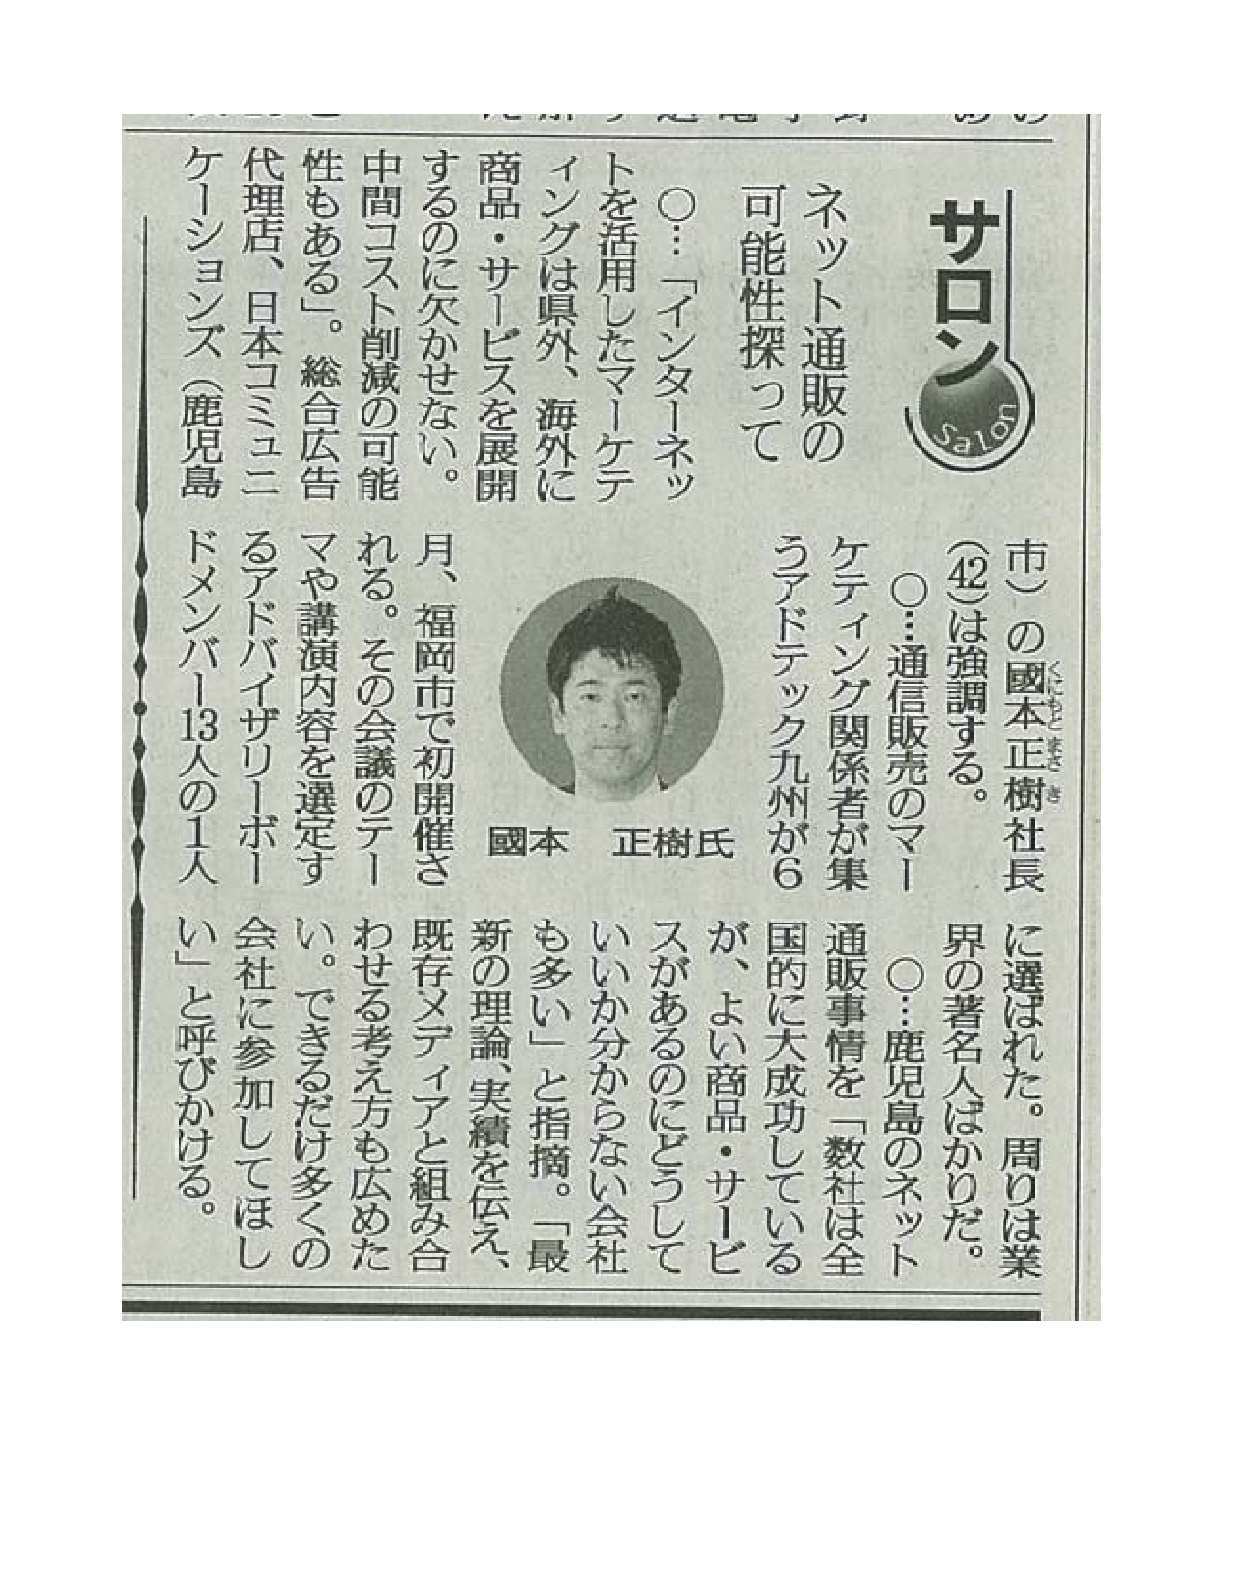 サロン
Salon
ネット通販の
可能性探って
○…「インターネッ
トを活用したマーケテ
ィングは県外、海外に
商品・サービスを展開
するのに欠かせない。
中間コスト削減の可能
性もある」。総合広告
代理店、日本コミュニ
ケーションズ（鹿児島
市）の國本正樹社長
くにもとまさき
(42)は強調する。
○…通信販売のマー
ケティング関係者が集
うアドテック九州が6
國本　正樹氏
月、福岡市で初開催さ
れる。その会議のテー
マや講演内容を選定す
るアドバイザリーボー
ドメンバー13人の1人
に選ばれた。周りは業
界の著名人ばかりだ。
○…鹿児島のネット
通販事情を「数社は全
国的に大成功している
が、よい商品・サービ
スがあるのにどうして
いいか分からない会社
も多い」と指摘。「最
新の理論、実績を伝え、
既存メディアと組み合
わせる考え方も広めた
い。できるだけ多くの
会社に参加してほし
い」と呼びかける。